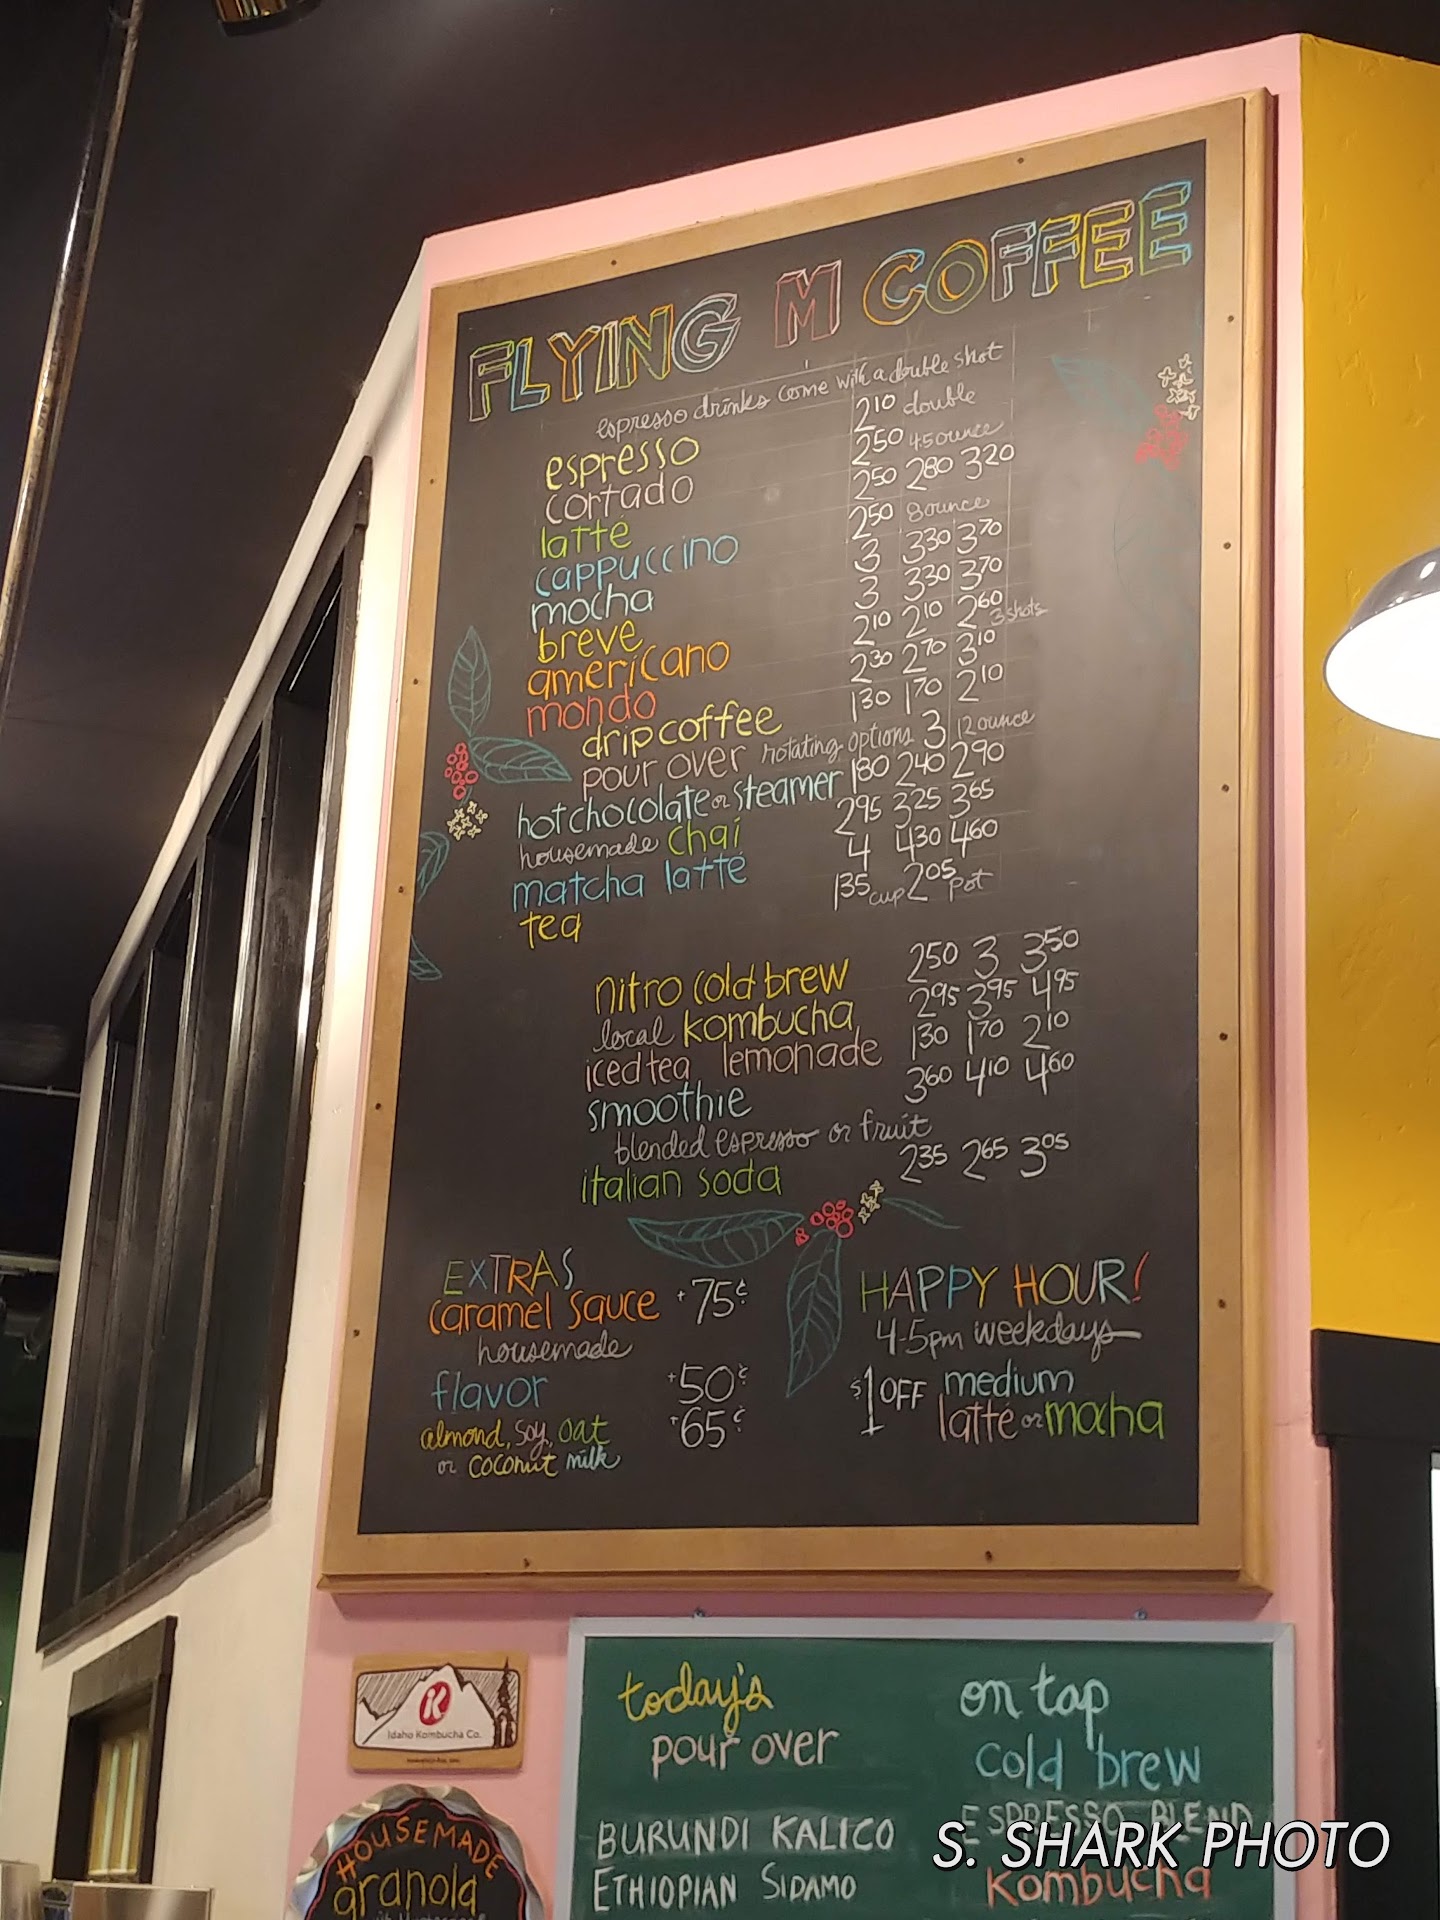 FLYING M COFFEE
espresso drinks come with a double shot
espresso 210 double
cortado 250 4.5 ounce
latte 250 280 320
cappuccino 250 8 ounce
mocha 3 330 370
breve 3 330 370
americano 210 210 260 3 shots
mondo 230 270 310
drip coffee 130 170 210
pour over rotating options 3 12 ounce
hot chocolate or steamer 180 240 290
housemade chai 295 325 365
matcha latte 4 430 460
tea 135 cup 205 pot
nitro cold brew 250 3 350
local kombucha 295 395 495
iced tea lemonade 130 170 210
smoothie 360 410 460
blended espresso or fruit
italian soda 235 265 305
EXTRAS
caramel sauce +75¢
housemade
flavor +50¢
almond, soy, oat +65¢
or coconut milk
HAPPY HOUR!
4-5pm weekdays
$1 OFF medium
latte or mocha
Idaho Kombucha Co.
HOUSEMADE
granola
today's
pour over
BURUNDI KALICO
ETHIOPIAN SIDAMO
on tap
cold brew
ESPRESSO BLEND
Kombucha
S. SHARK PHOTO